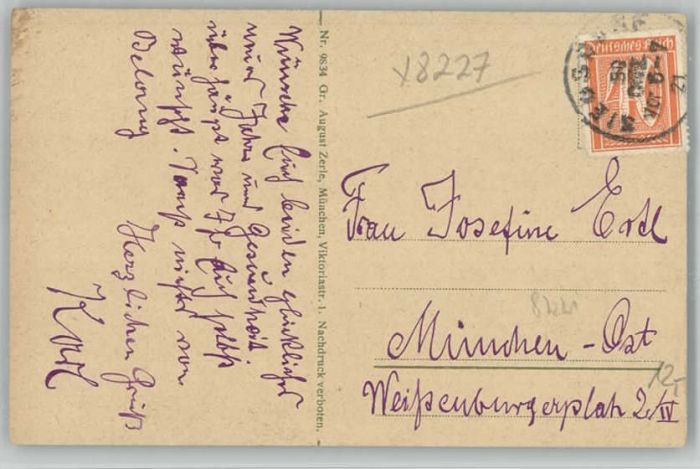 Wünsche Euch beiden glückliches
neues Jahr und Gesundheit.
überhaupt was Ihr Euch selbst
wünscht. Sonst nichts von
Belang
Herzlichen Gruß
Karl
Nr. 9834 Gr. August Zerle, München, Viktoriastr. 1. Nachdruck verboten.
x8227
Deutsches Reich
Frau Josefine Ertl
München-Ost
Weißenburgerplatz 2/IV